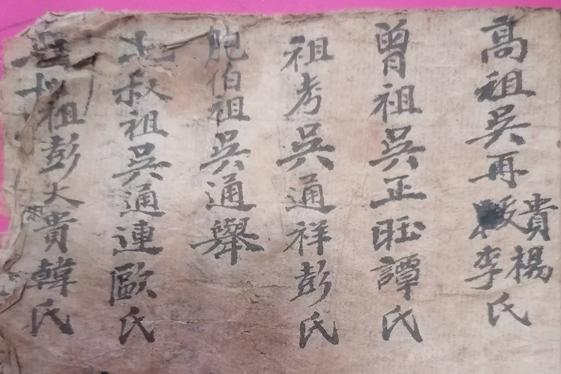 高祖吳再貴楊李氏
曾祖吳正旺譚氏
祖考吳通祥彭氏
胞伯祖吳通舉
叔祖吳通連歐氏
祖彭大貴韓氏